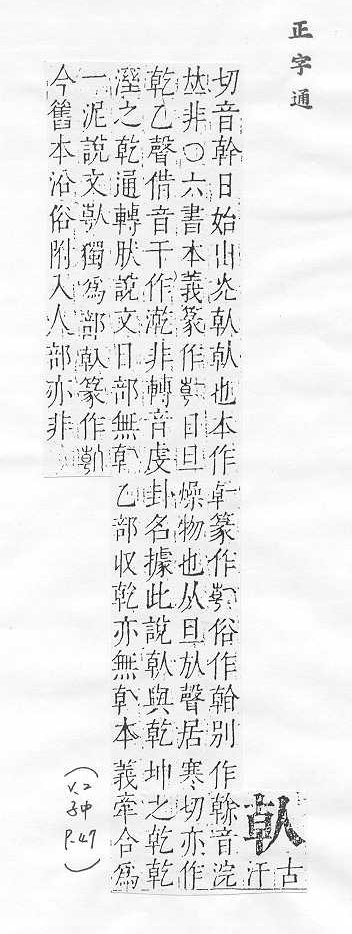 正字通
倝
古
汗
切音幹日始出光倝倝也本作篆作俗作別作榦音浣
𠀤非〇六書本義篆作日旦燥物也从旦㫃聲居寒切亦作
乾乙聲借音干作漧非轉音虔卦名據此說倝與乾坤之乾乾
溼之乾通轉肰說文日部無倝乙部收乾亦無倝本義牽合爲
一泥說文倝獨爲部倝篆作
今舊本沿俗附入人部亦非
(V.2
子中
P.47)